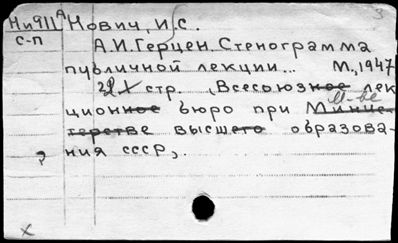 Ни911 А Нович, И.С. 3
с-п
А.И.Герцен. Стенограмма
публичной лекции... М., 1947
22 стр. (Всесоюзное лек
ционное бюро при Минис
м-ве
терстве высшего образова-
ния СССР).
?
х